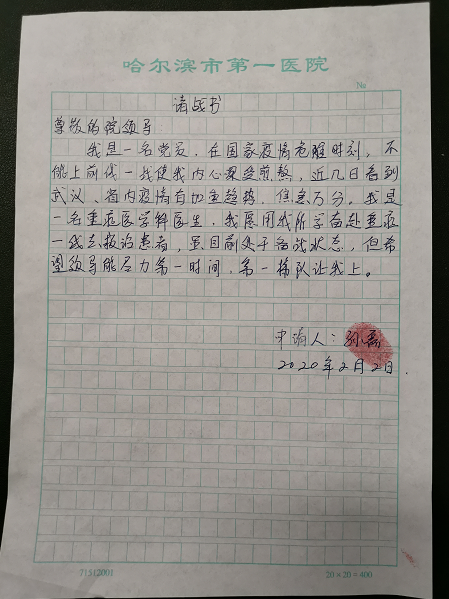 哈尔滨市第一医院
№
请战书
尊敬的院领导:
我是一名党员,在国家疫情危难时刻,不
能上前线一线使我内心受煎熬,近几日看到
武汉、省内疫情有加重趋势,焦急万分。我是
一名重症医学科医生,我愿用我所学奋赴重症
一线去救治患者,虽目前处于备战状态,但希
望领导能尽力第一时间,第一梯队让我上。
申请人:孙磊
2020年2月2日.
71512001
20×20=400